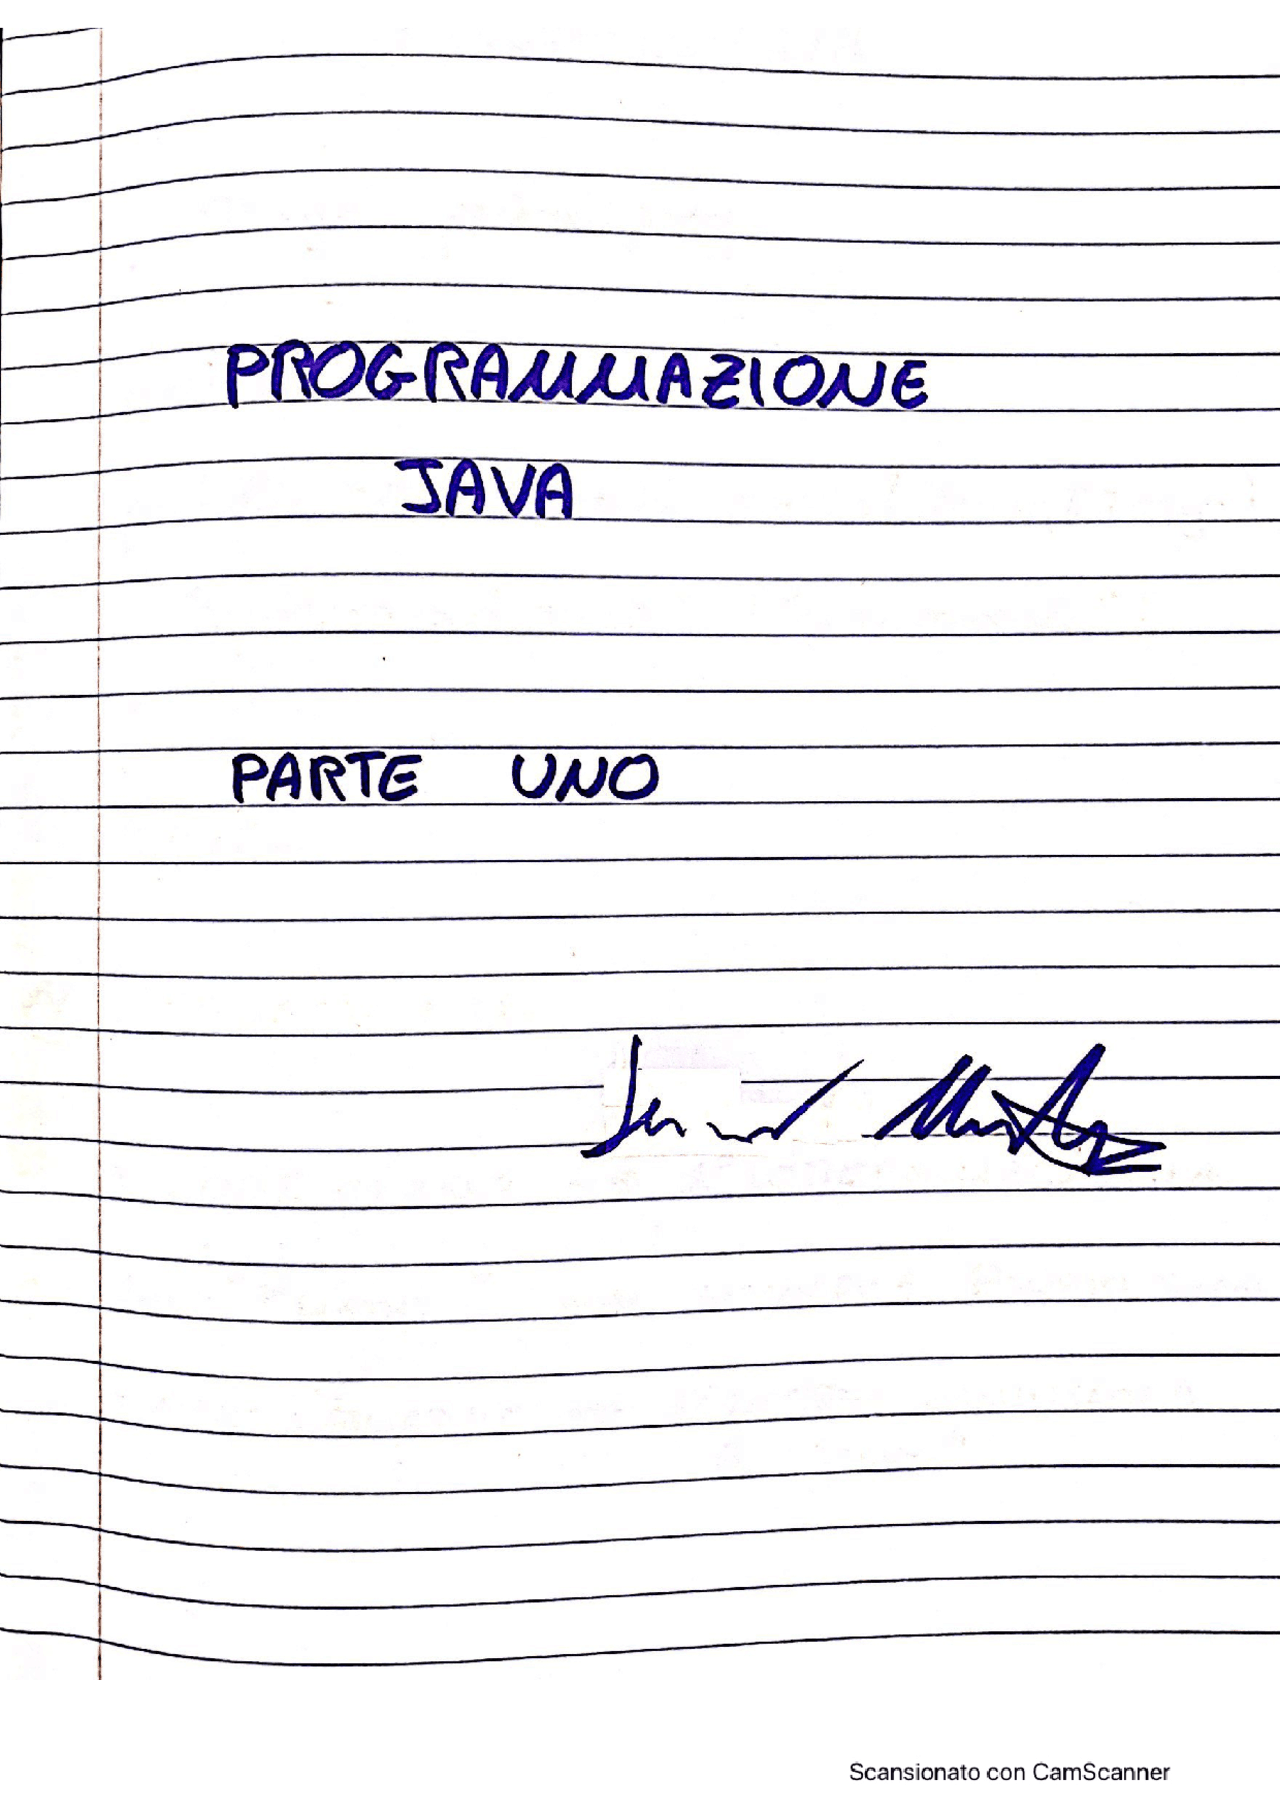 PROGRAMMAZIONE
JAVA
PARTE UNO
Scansionato con CamScanner